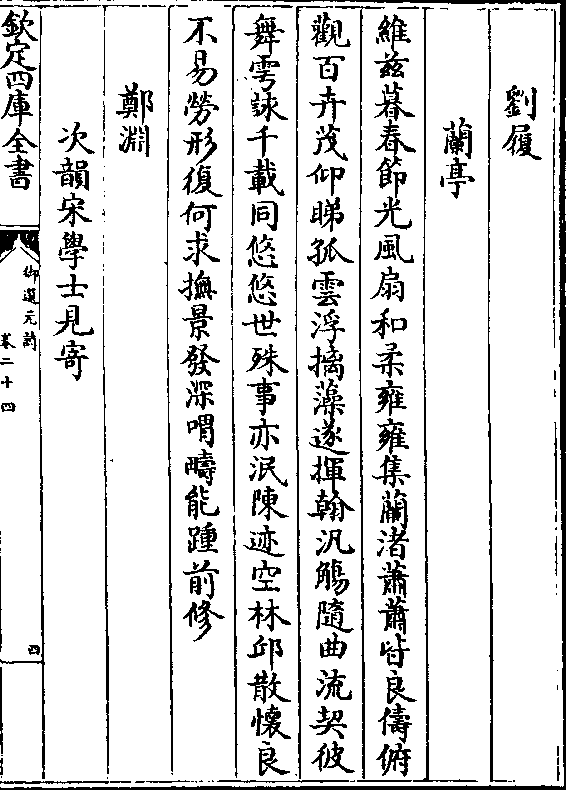 劉履
蘭亭
維兹暮春節光風扇和柔雍雍集蘭渚蕭蕭皆良儔俯
觀百卉茂仰睇孤雲浮摛藻遂揮翰汎觴隨曲流契彼
舞雩詠千載同悠悠世殊事亦泯陳迹空林邱散懷良
不易勞形復何求撫景發深喟疇能踵前修
鄭淵
次韻宋學士見寄
欽定四庫全書
御選元詩
卷二十四
四